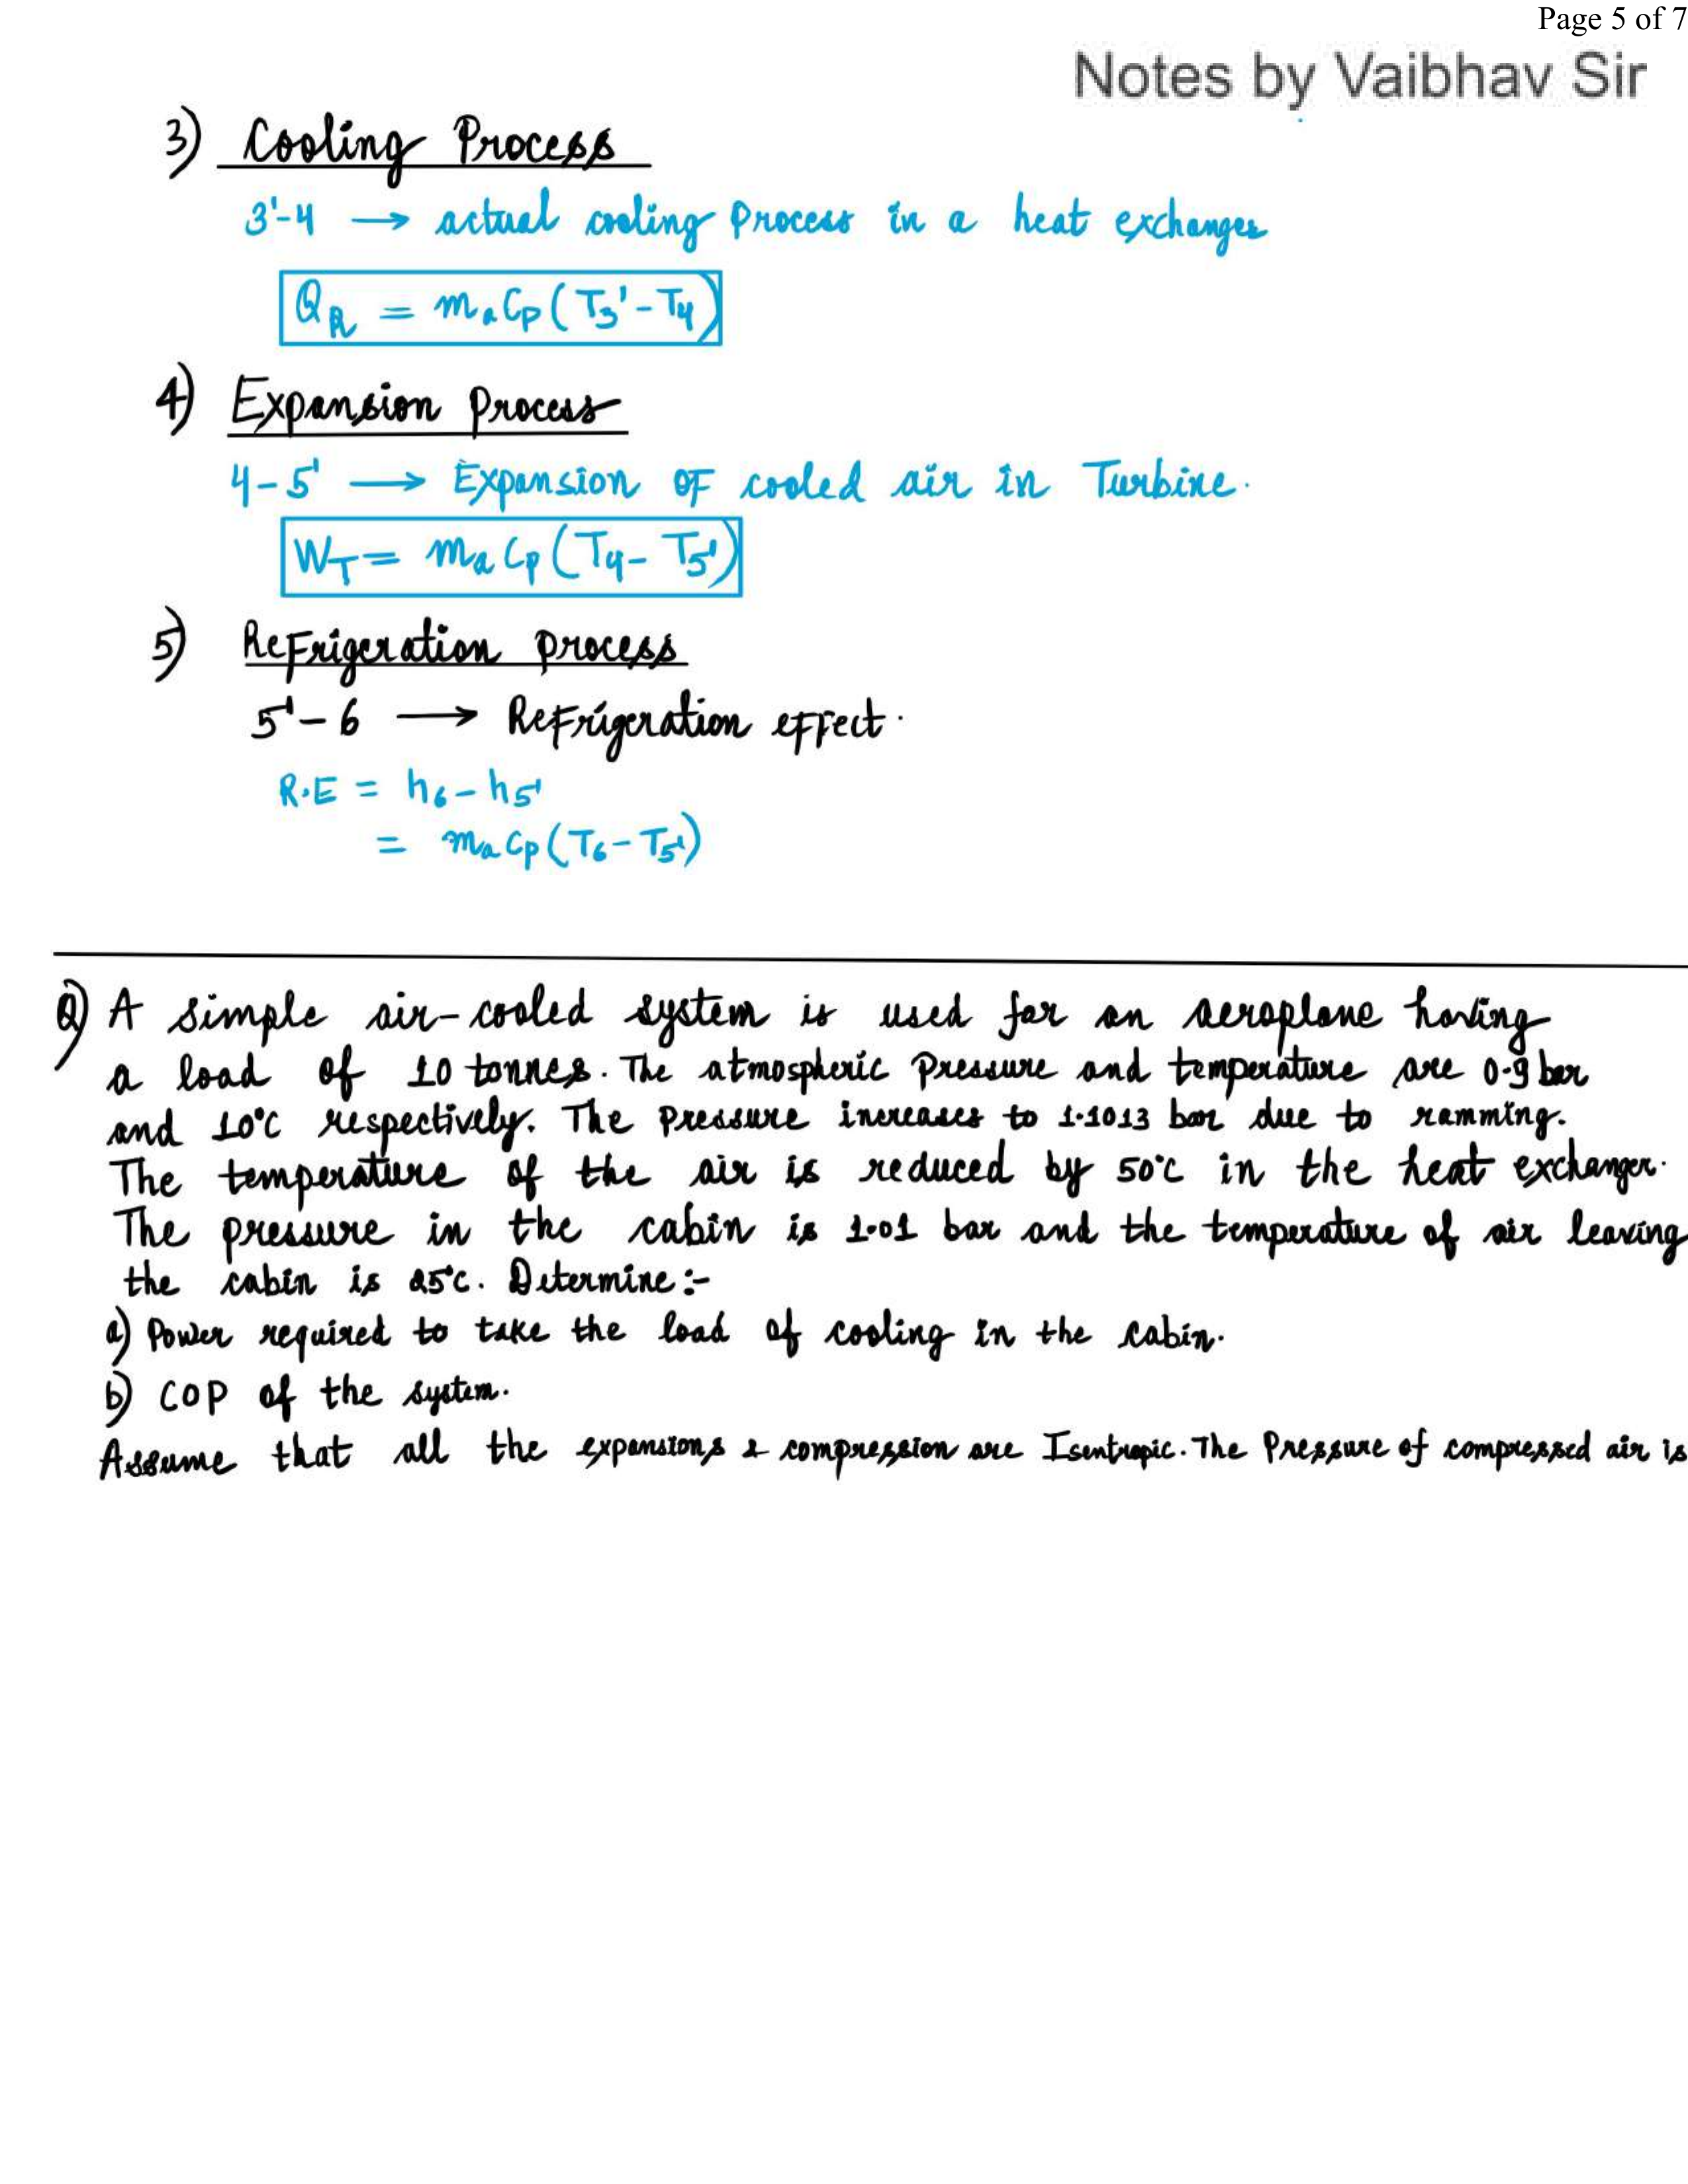 Page 5 of 7
Notes by Vaibhav Sir
3) Cooling Process
3'-4 → actual cooling process in a heat exchanger
Q_R = m_a C_p (T_3' - T_4)
4) Expansion Process
4-5' → Expansion OF cooled air in Turbine.
W_T = m_a C_p (T_4 - T_5')
5) Refrigeration process
5'-6 → Refrigeration effect.
R.E = h_6 - h_5'
= m_a C_p (T_6 - T_5')
Q) A simple air-cooled system is used for an aeroplane having
a load of 10 tonnes. The atmospheric Pressure and temperature are 0.9 bar
and 10°C respectively. The Pressure increases to 1.1013 bar due to ramming.
The temperature of the air is reduced by 50°C in the heat exchanger.
The pressure in the cabin is 1.01 bar and the temperature of air leaving
the cabin is 25°C. Determine:-
a) Power required to take the load of cooling in the cabin.
b) COP of the system.
Assume that all the expansions & compression are Isentropic. The Pressure of compressed air is